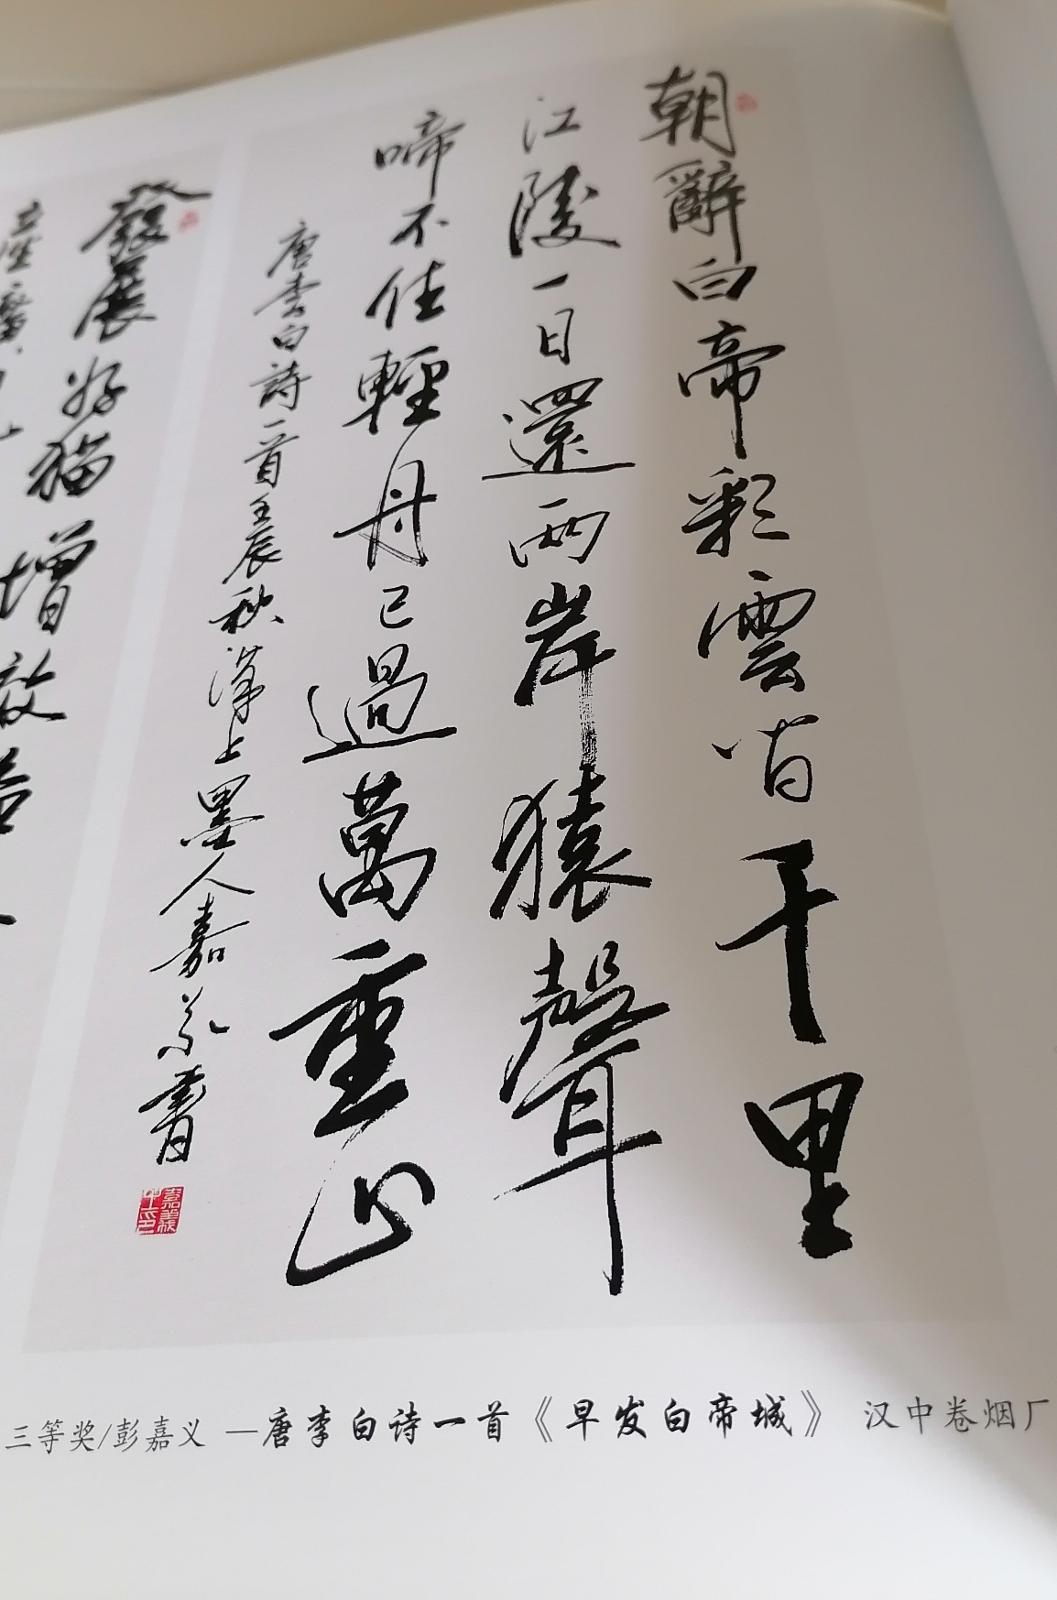 朝辭白帝彩雲間千里
江陵一日還兩岸猿聲
啼不住輕舟已過萬重山
唐李白詩一首壬辰秋漢上墨人嘉義書
發展好猫增效益
三等奖/彭嘉义 —唐李白诗一首《早发白帝城》 汉中卷烟厂